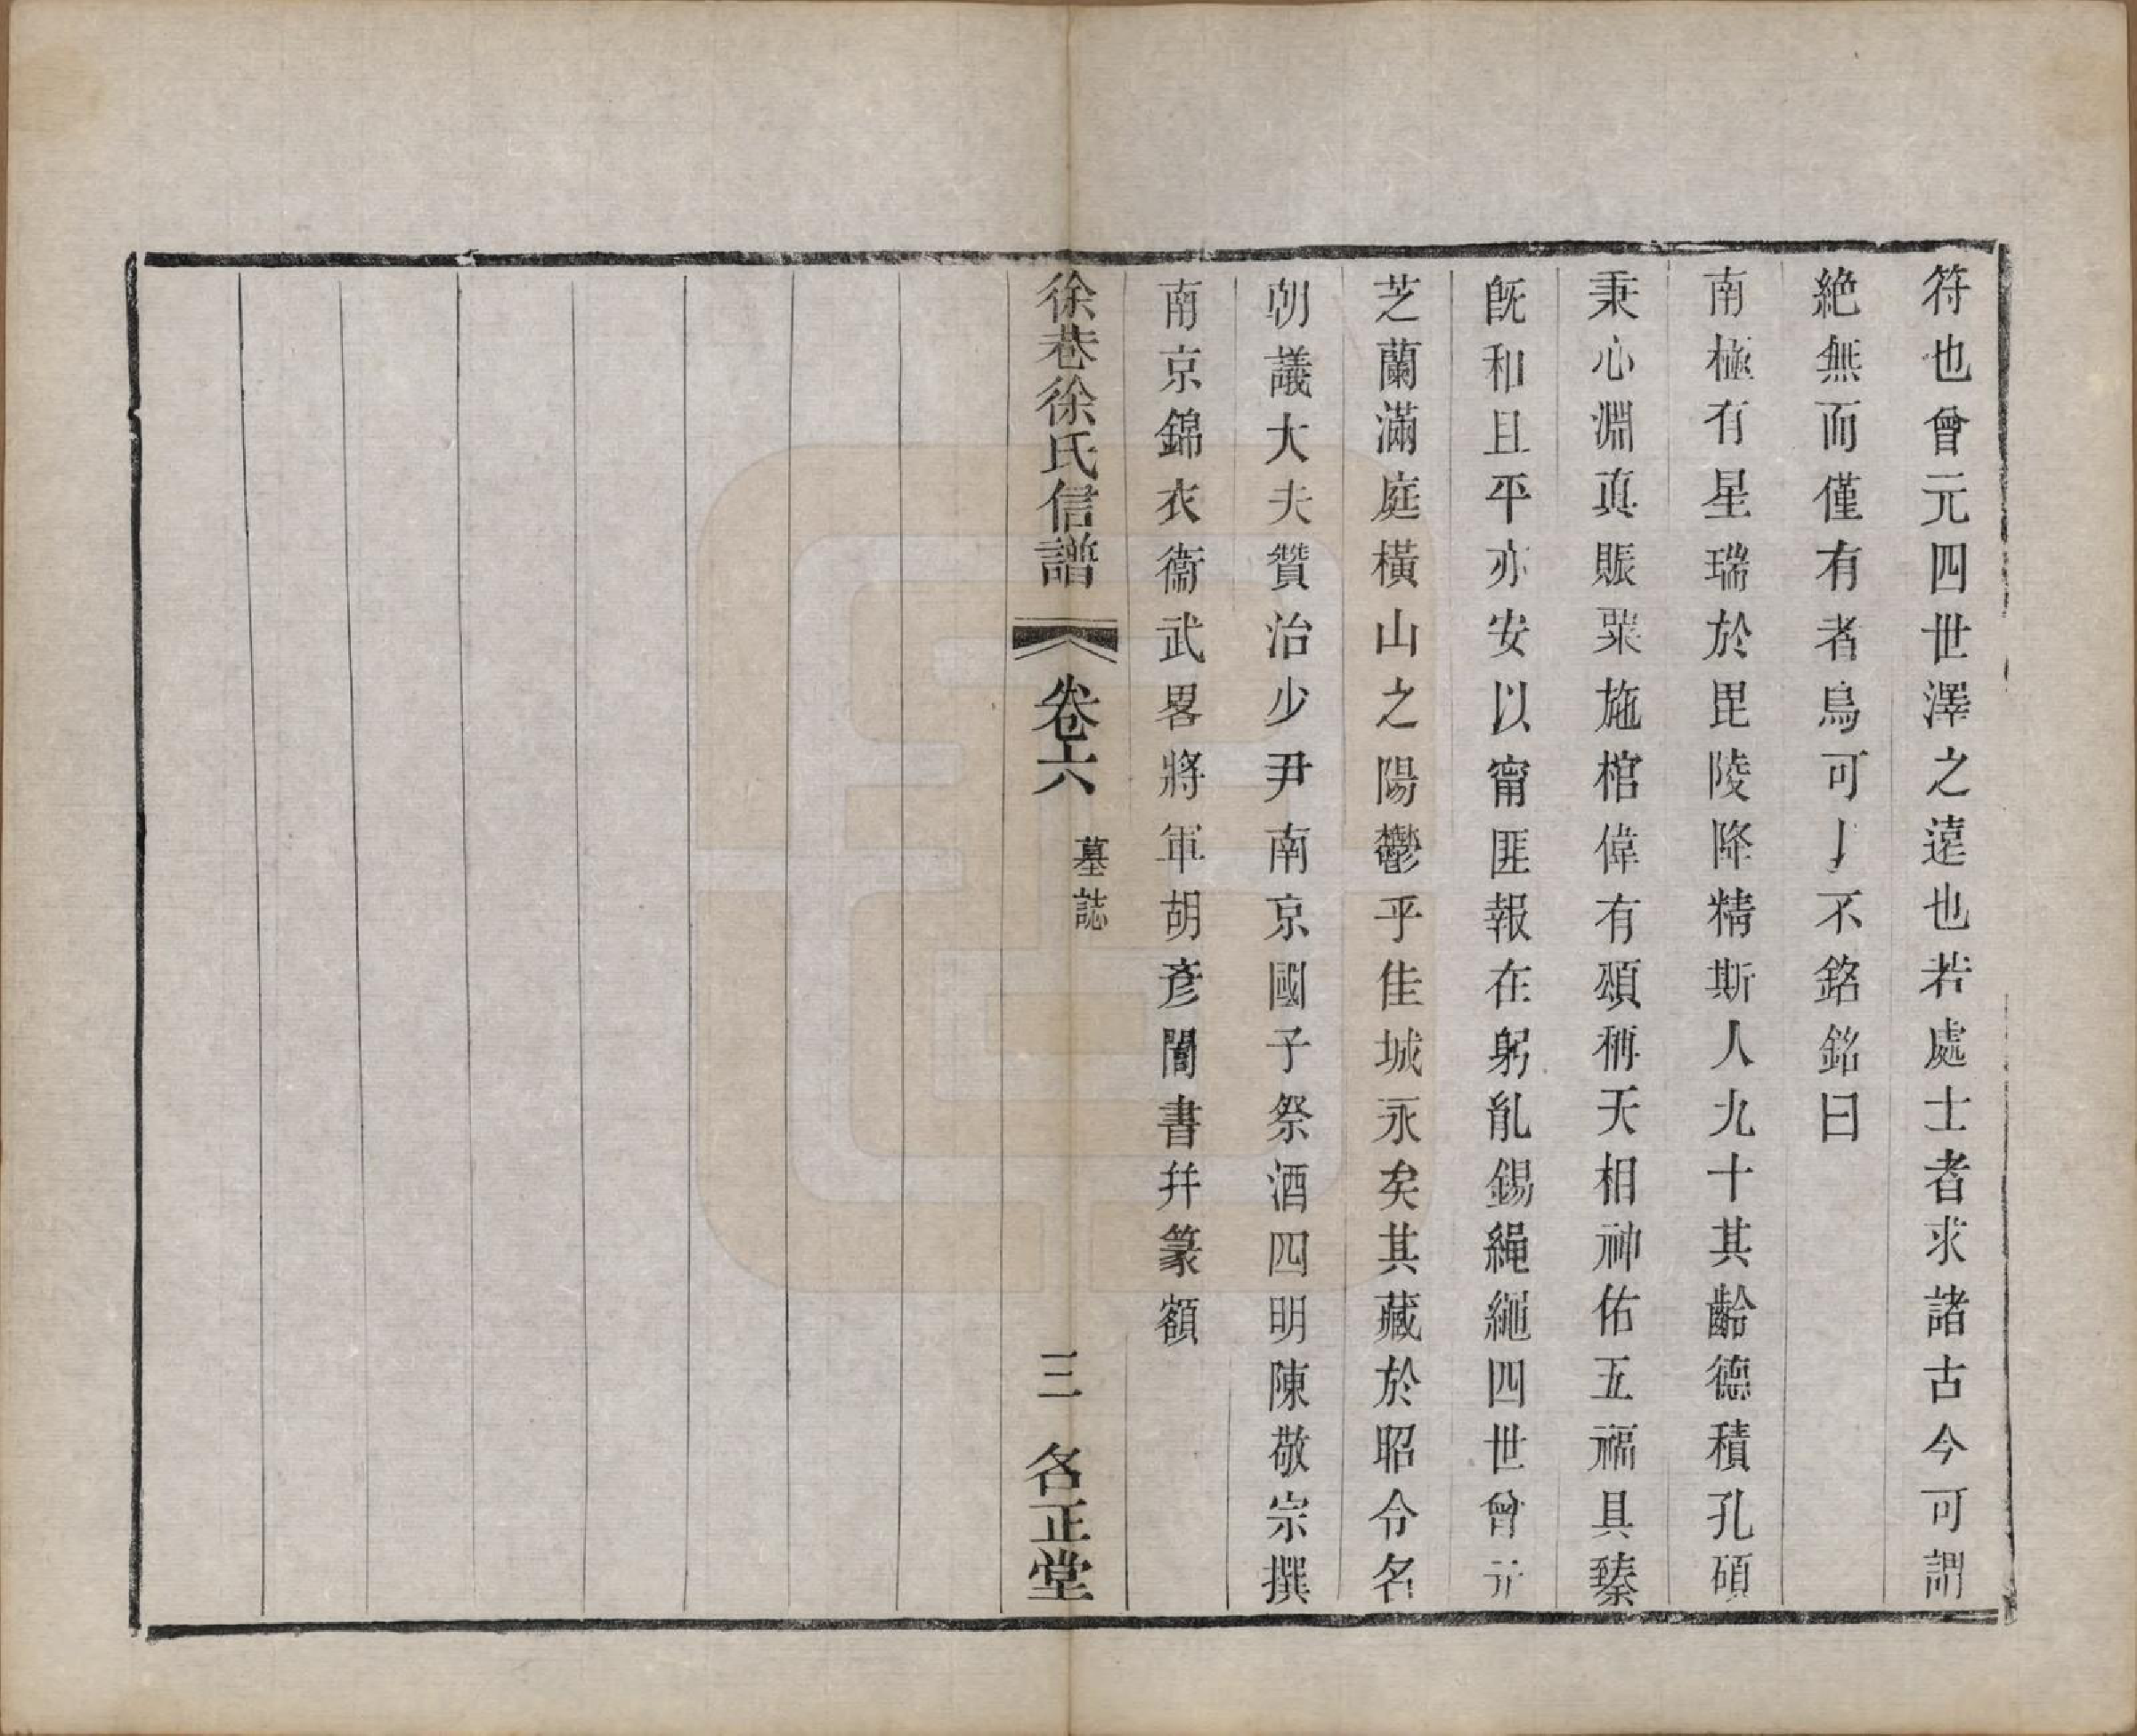 符也曾元四世澤之遠也若處士者求諸古今可謂
絶無而僅有者烏可不銘銘曰
南極有星瑞於毘陵降精斯人九十其齡德積孔碩
秉心淵真賑粟施棺偉有頌稱天相神佑五福具臻
旣和且平亦安以甯匪報在躬胤錫繩繩四世曾元
芝蘭滿庭橫山之陽鬱乎佳城永矣其藏於昭令名
朝議大夫贊治少尹南京國子祭酒四明陳敬宗撰
南京錦衣衞武畧將軍胡彥誾書幷篆額
徐巷徐氏信譜 卷六 墓誌 三 名正堂